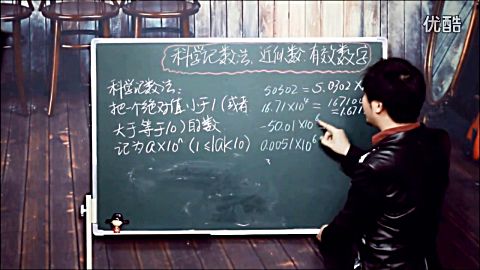 优酷
科学记数法, 近似数, 有效数字
科学记数法:
把一个绝对值小于1(或者
大于等于10)的数
记为a×10ⁿ (1≤|a|<10)
50302 = 5.0302×
16.71×10⁴ =
-50.01×10
0.0051×10⁶